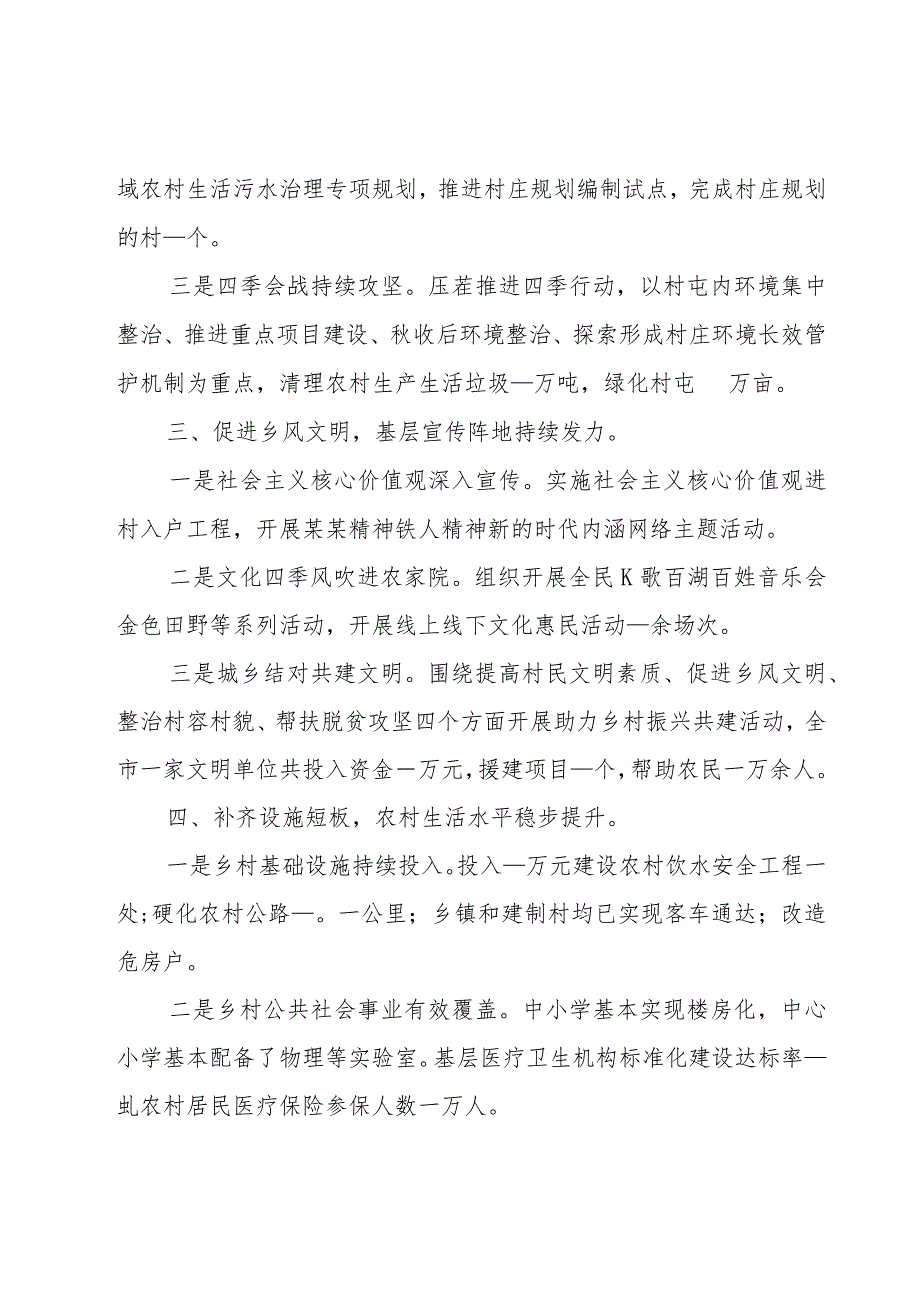 域农村生活污水治理专项规划，推进村庄规划编制试点，完成村庄规划
的村—个。
三是四季会战持续攻坚。压茬推进四季行动，以村屯内环境集中
整治、推进重点项目建设、秋收后环境整治、探索形成村庄环境长效管
护机制为重点，清理农村生产生活垃圾—万吨，绿化村屯 万亩。
三、促进乡风文明，基层宣传阵地持续发力。
一是社会主义核心价值观深入宣传。实施社会主义核心价值观进
村入户工程，开展某某精神铁人精神新的时代内涵网络主题活动。
二是文化四季风吹进农家院。组织开展全民K歌百湖百姓音乐会
金色田野等系列活动，开展线上线下文化惠民活动—余场次。
三是城乡结对共建文明。围绕提高村民文明素质、促进乡风文明、
整治村容村貌、帮扶脱贫攻坚四个方面开展助力乡村振兴共建活动，全
市一家文明单位共投入资金－万元，援建项目—个，帮助农民一万余人。
四、补齐设施短板，农村生活水平稳步提升。
一是乡村基础设施持续投入。投入—万元建设农村饮水安全工程一
处;硬化农村公路—。一公里；乡镇和建制村均已实现客车通达；改造
危房户。
二是乡村公共社会事业有效覆盖。中小学基本实现楼房化，中心
小学基本配备了物理等实验室。基层医疗卫生机构标准化建设达标率—
虬农村居民医疗保险参保人数一万人。